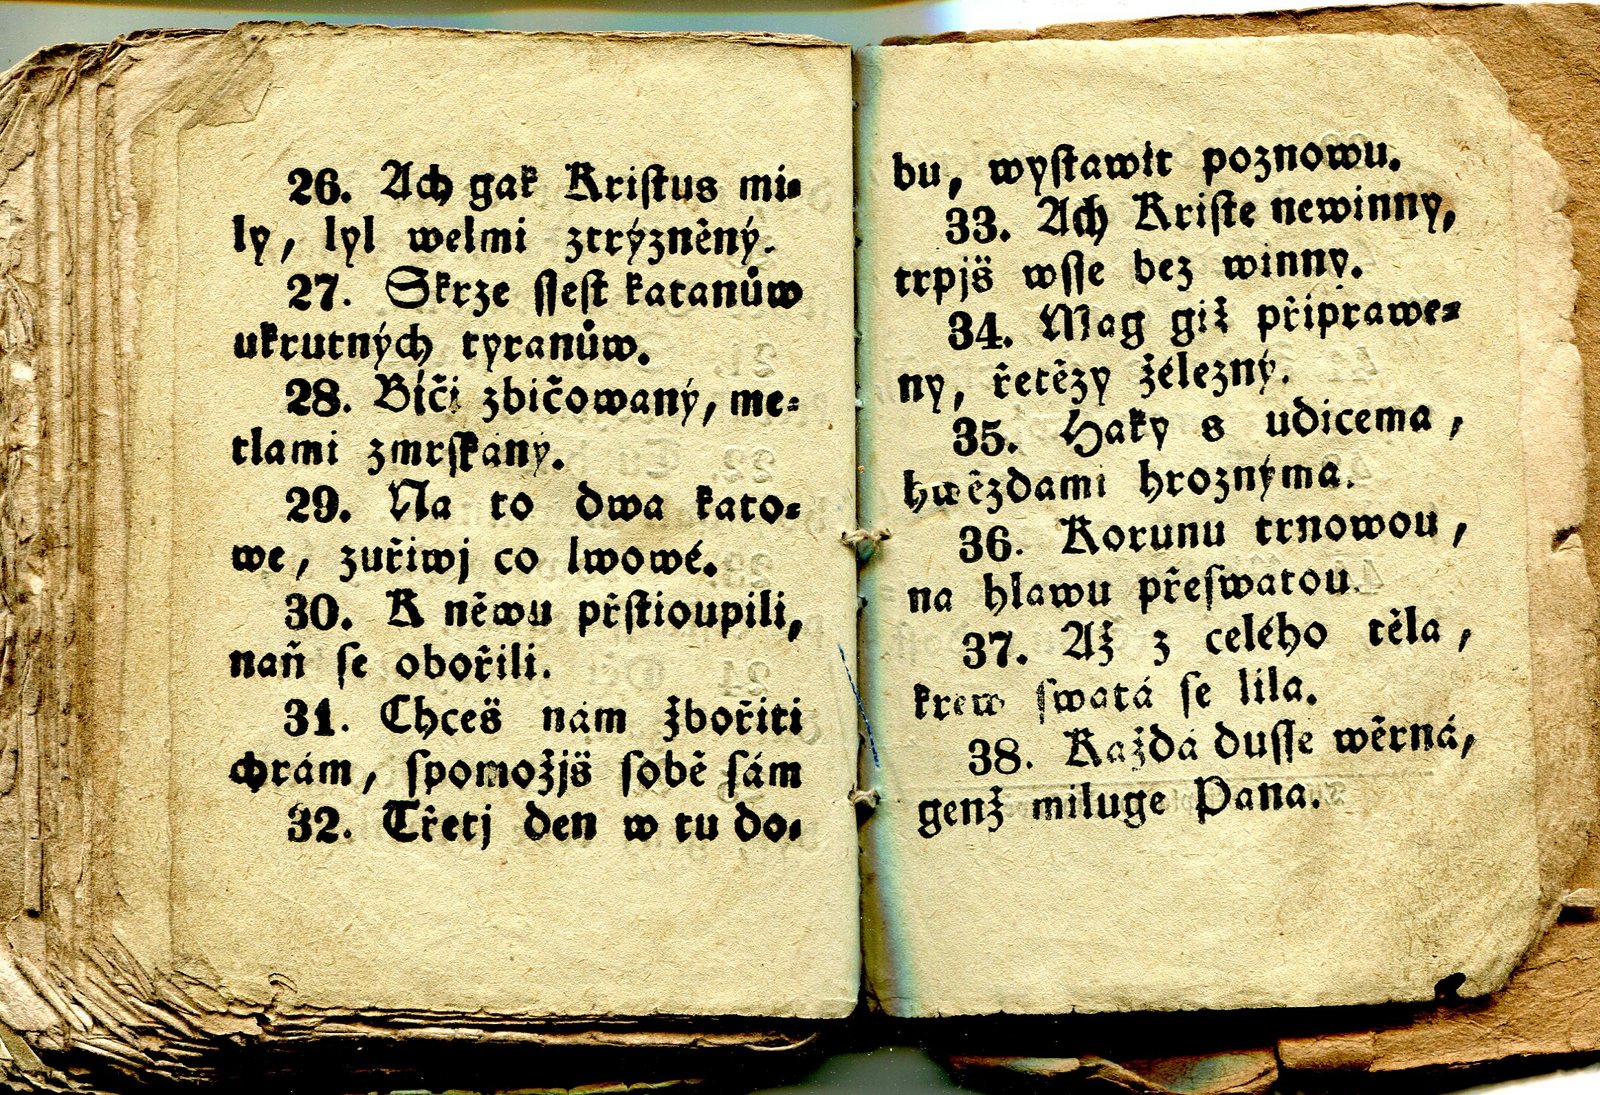 26. Ach gak Kristus mi-
ly, lyl welmi ztrýzněný.
27. Skrze ssest katanůw
ukrutných tyranůw.
28. Bíči zbičowaný, me-
tlami zmrskaný.
29. Na to dwa kato-
we, zuřiwj co lwowé.
30. K němu přstioupili,
naň se obořili.
31. Chceš nám zbořiti
chrám, spomožjš sobě sám
32. Třetj den w tu do-
bu, wystawit poznowu.
33. Ach Kriste newinny,
trpjš wsse bez winny.
34. Mag giž připrawe-
ny, řetězy železný.
35. Haky s udicema,
hwězdami hroznýma.
36. Korunu trnowou,
na hlawu přeswatou.
37. Až z celého těla,
krew swatá se lila.
38. Každá dusse wěrná,
genž miluge Pana.